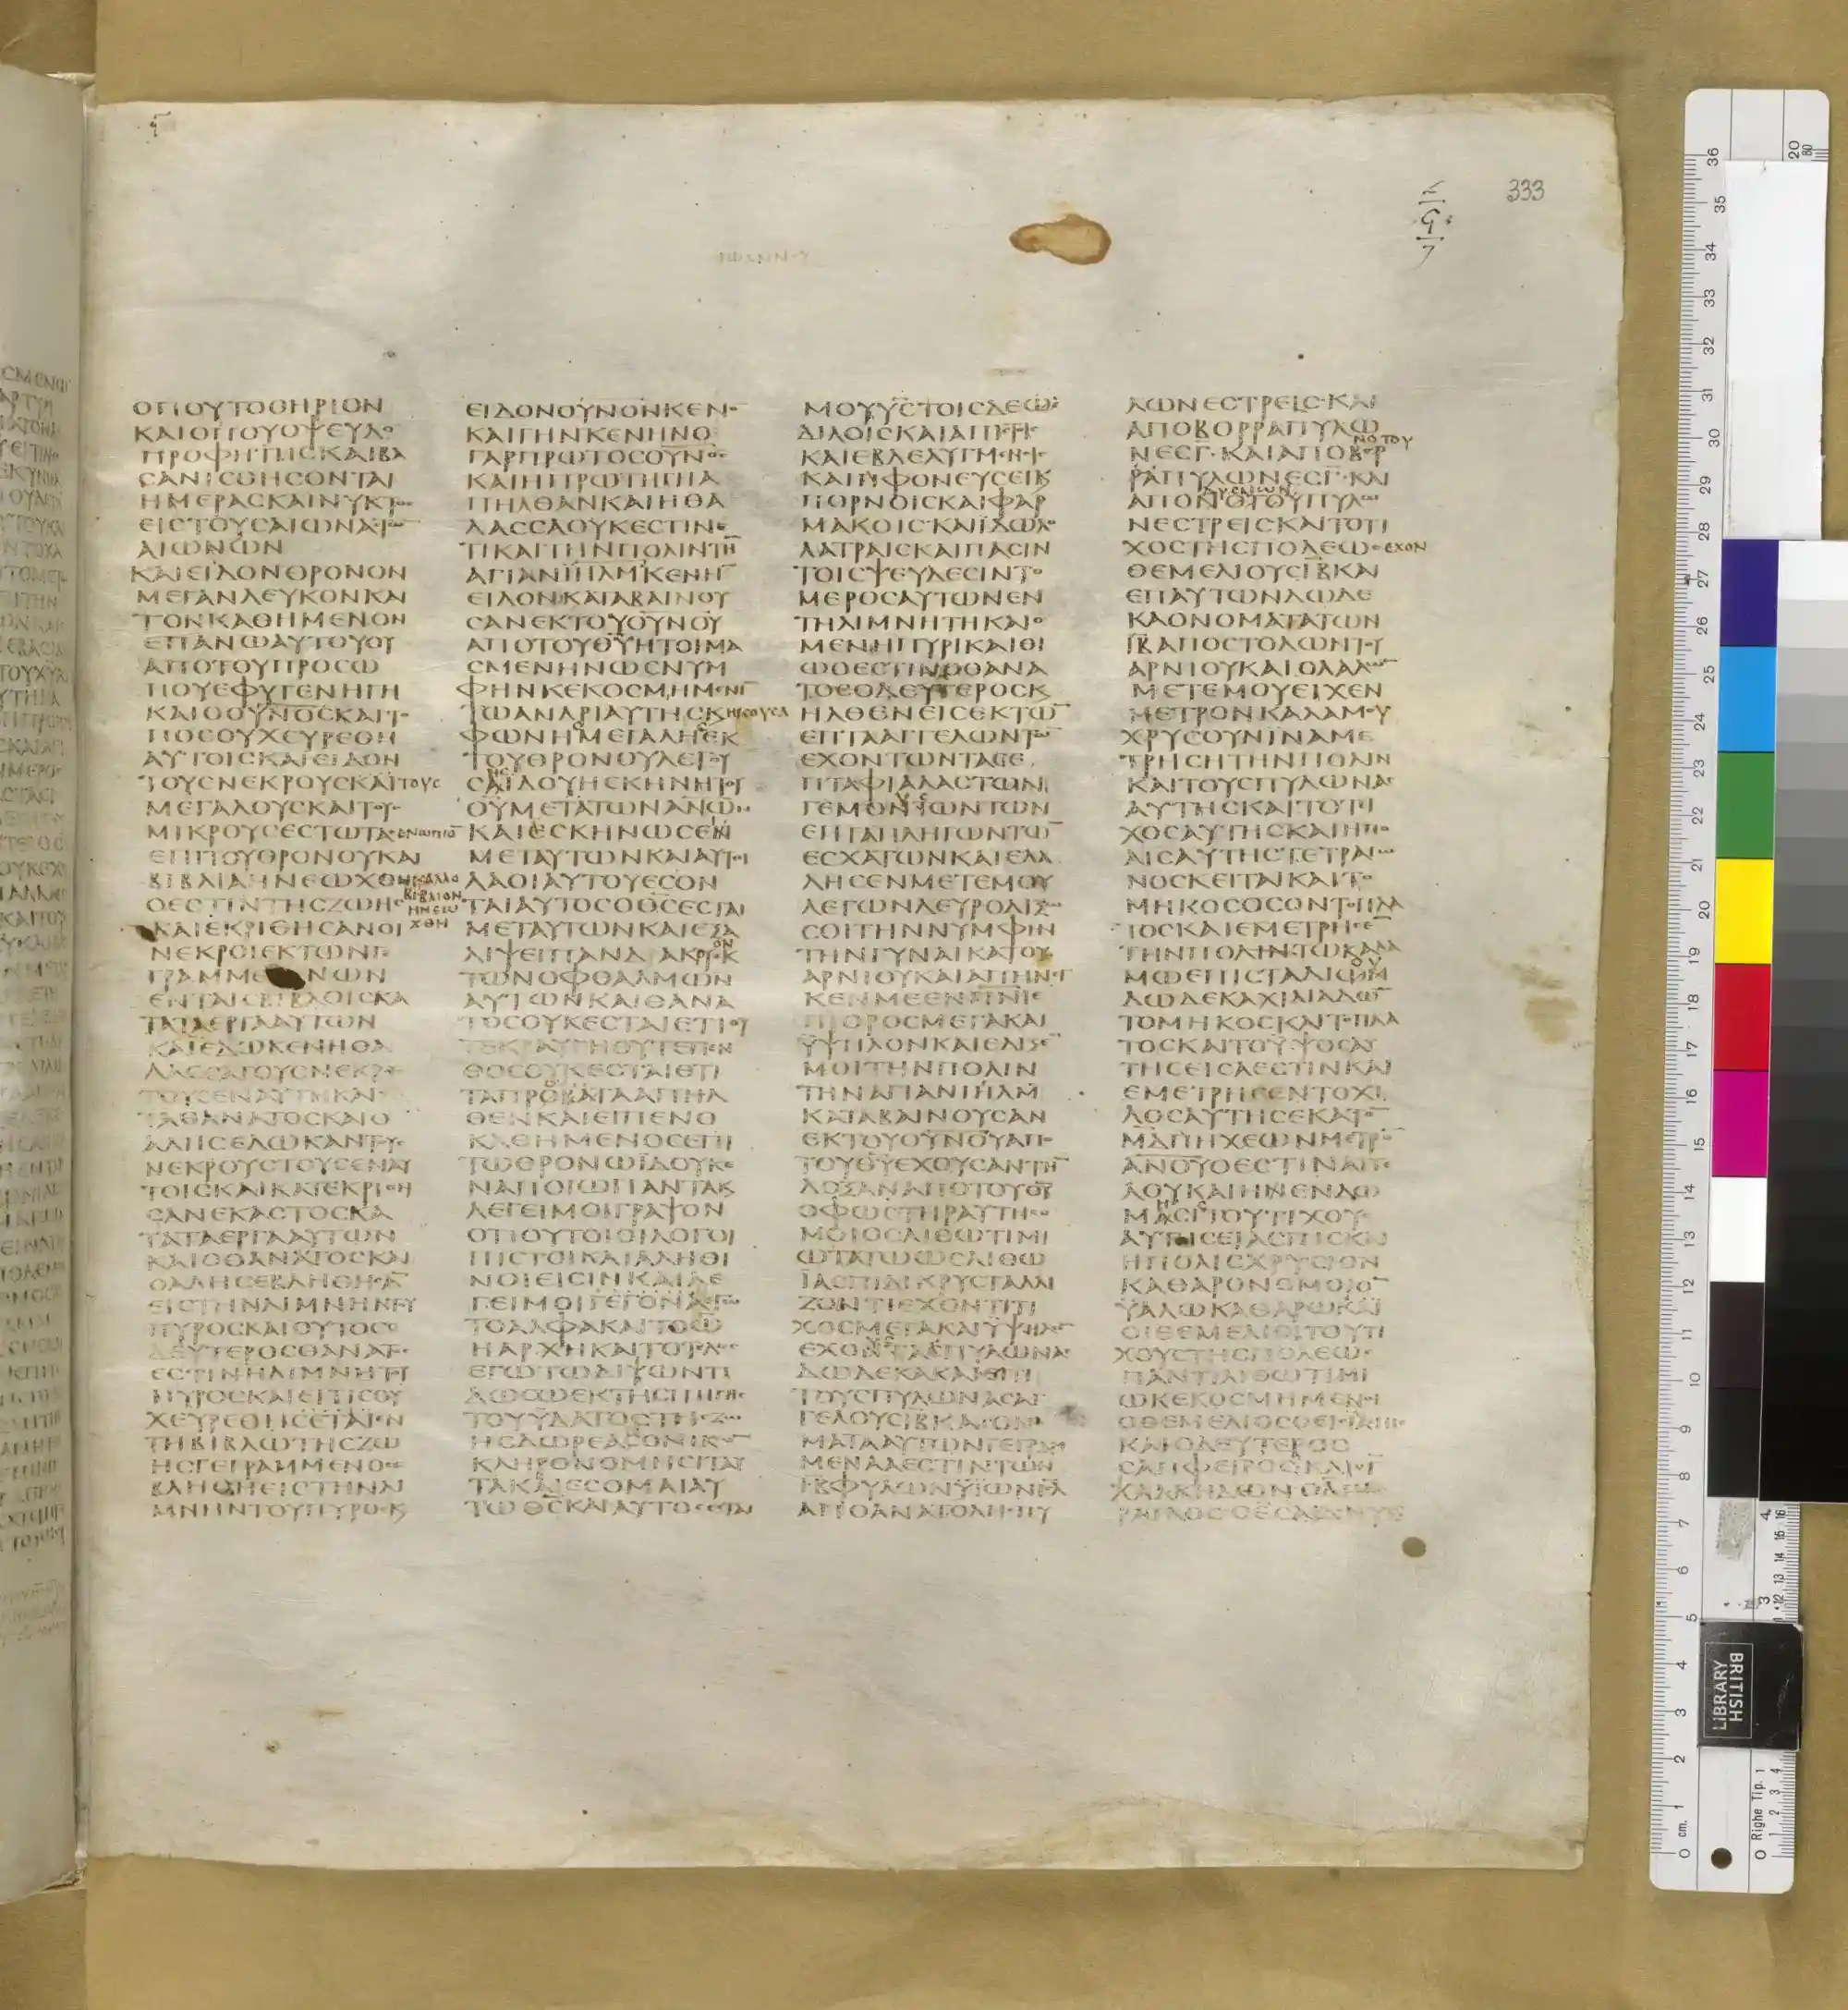 333
ΙΩΑΝΝΟΥ
ΟΠΟΥΤΟΘΗΡΙΟΝ
ΚΑΙΟΠΟΥΟΨΕΥΔΟ
ΠΡΟΦΗΤΗϹΚΑΙΒΑ
ϹΑΝΙϹΘΗϹΟΝΤΑΙ
ΗΜΕΡΑϹΚΑΙΝΥΚΤΟϹ
ΕΙϹΤΟΥϹΑΙΩΝΑϹΤΩ̅
ΑΙΩΝΩΝ
ΚΑΙΕΙΔΟΝΘΡΟΝΟΝ
ΜΕΓΑΝΛΕΥΚΟΝΚΑΙ
ΤΟΝΚΑΘΗΜΕΝΟΝ
ΕΠΑΝΩΑΥΤΟΥΟΥ
ΑΠΟΤΟΥΠΡΟϹΩ
ΠΟΥΕΦΥΓΕΝΗΓΗ
ΚΑΙΟΟΥΝΟϹΚΑΙΤΟ
ΠΟϹΟΥΧΕΥΡΕΘΗ
ΑΥΤΟΙϹΚΑΙΕΙΔΟΝ
ΤΟΥϹΝΕΚΡΟΥϹΚΑΙΤΟΥϹ
ΜΕΓΑΛΟΥϹΚΑΙΤΟΥϹ
ΜΙΚΡΟΥϹΕϹΤΩΤΑϹΕΝΩΠΙΟ̅
ΕΠΙΤΟΥΘΡΟΝΟΥΚΑΙ
ΒΙΒΛΙΑΗΝΕΩΧΘΗΚΑΙΑΛΛΟ
ΒΙΒΛΙΟΝ
ΗΝΕΩ
ΧΘΗ
ΟΕϹΤΙΝΤΗϹΖΩΗϹ
ΚΑΙΕΚΡΙΘΗϹΑΝΟΙ
ΝΕΚΡΟΙΕΚΤΩΝΓΕ
ΓΡΑΜΜΕΝΩΝ
ΕΝΤΑΙϹΒΙΒΛΟΙϹΚΑ
ΤΑΤΑΕΡΓΑΑΥΤΩΝ
ΚΑΙΕΔΩΚΕΝΗΘΑ
ΛΑϹϹΑΤΟΥϹΝΕΚΡΟΥϹ
ΤΟΥϹΕΝΑΥΤΗΚΑΙ
ΘΑΝΑΤΟϹΚΑΙΟ
ΑΔΗϹΕΔΩΚΑΝΤΟΥϹ
ΝΕΚΡΟΥϹΤΟΥϹΕΝΑΥ
ΤΟΙϹΚΑΙΚΑΤΕΚΡΙΘΗ
ϹΑΝΕΚΑϹΤΟϹΚΑ
ΤΑΤΑΕΡΓΑΑΥΤΩΝ
ΚΑΙΟΘΑΝΑΤΟϹΚΑΙ
ΟΑΔΗϹΕΒΛΗΘΗϹΑ̅
ΕΙϹΤΗΝΛΙΜΝΗΝΤΟΥ
ΠΥΡΟϹΚΑΙΟΥΤΟϹΟ
ΔΕΥΤΕΡΟϹΘΑΝΑΤΟϹ
ΕϹΤΙΝΗΛΙΜΝΗΤΟΥ
ΠΥΡΟϹΚΑΙΕΙΤΙϹΟΥ
ΧΕΥΡΕΘΗϹΕΤΑΙΕΝ
ΤΗΒΙΒΛΩΤΗϹΖΩ
ΗϹΓΕΓΡΑΜΜΕΝΟϹ
ΒΛΗΘΗΕΙϹΤΗΝΛΙ
ΜΝΗΝΤΟΥΠΥΡΟϹΚ
ΕΙΔΟΝΟΥΝΟΝΚΕΝΟ
ΚΑΙΓΗΝΚΕΝΗΝΟ
ΓΑΡΠΡΩΤΟϹΟΥΝΟϹ
ΚΑΙΗΠΡΩΤΗΓΗΑ
ΠΗΛΘΑΝΚΑΙΗΘΑ
ΛΑϹϹΑΟΥΚΕϹΤΙΝΕ
ΤΙΚΑΙΤΗΝΠΟΛΙΝΤΗ̅
ΑΓΙΑΝΙΗΛΜΚΕΝΗ̅
ΕΙΔΟΝΚΑΤΑΒΑΙΝΟΥ
ϹΑΝΕΚΤΟΥΟΥΝΟΥ
ΑΠΟΤΟΥΘΥΗΤΟΙΜΑ
ϹΜΕΝΗΝΩϹΝΥΜ
ΦΗΝΚΕΚΟϹΜΗΜΕΝΗ̅
ΤΩΑΝΔΡΙΑΥΤΗϹΚΗΚΟΥϹΑ
ΦΩΝΗϹΜΕΓΑΛΗϹΕΚ
ΤΟΥΘΡΟΝΟΥΛΕΓΟΥ
ϹΑΙΔΟΥΗϹΚΗΝΗΤΟΥ
ΘΥΜΕΤΑΤΩΝΑΝΩΝ
ΚΑΙΕϹΚΗΝΩϹΕΝ
ΜΕΤΑΥΤΩΝΚΑΙΑΥΤΟΙ
ΛΑΟΙΑΥΤΟΥΕϹΟΝ
ΤΑΙΑΥΤΟϹΟΘϹΕϹΤΑΙ
ΜΕΤΑΥΤΩΝΚΑΙΕΞΑ
ΛΙΨΕΙΠΑΝΔΑΚΡΥΟΝΕΚ
ΤΩΝΟΦΘΑΛΜΩΝ
ΑΥΤΩΝΚΑΙΘΑΝΑ
ΤΟϹΟΥΚΕϹΤΑΙΕΤΙΟΥ
ΤΕΚΡΑΥΓΗΟΥΤΕΠΕΝ
ΘΟϹΟΥΚΕϹΤΑΙΕΤΙ
ΤΑΠΡΟΒΑΤΑΑΠΗΛ
ΘΕΝΚΑΙΕΙΠΕΝΟ
ΚΑΘΗΜΕΝΟϹΕΠΙ
ΤΩΘΡΟΝΩΪΔΟΥΚΕ
ΝΑΠΟΙΩΠΑΝΤΑΚ
ΛΕΓΕΙΜΟΙΓΡΑΨΟΝ
ΟΤΙΟΥΤΟΙΟΙΛΟΓΟΙ
ΠΙϹΤΟΙΚΑΙΑΛΗΘΙ
ΝΟΙΕΙϹΙΝΚΑΙΛΕ
ΓΕΙΜΟΙΓΕΓΟΝΑΕΓΩ
ΤΟΑΛΦΑΚΑΙΤΟΩ
ΗΑΡΧΗΚΑΙΤΟΤΕΛΟϹ
ΕΓΩΤΩΔΙΨΩΝΤΙ
ΔΩϹΩΕΚΤΗϹΠΗΓΗϹ
ΤΟΥΫΔΑΤΟϹΤΗϹΖΩ
ΗϹΔΩΡΕΑΝΟΝΙΚΩ̅
ΚΛΗΡΟΝΟΜΗϹΙΤΑΥ
ΤΑΚΑΙΕϹΟΜΑΙΑΥ
ΤΩΘϹΚΑΙΑΥΤΟϹΕϹΤΑΙ
ΜΟΥΥϹΤΟΙϹΔΕΩϹ
ΔΙΛΟΙϹΚΑΙΑΠΙϹΤΟΙϹ
ΚΑΙΕΒΔΕΛΥΓΜΕΝΟΙϹ
ΚΑΙΦΟΝΕΥϹΕΙΚ
ΠΟΡΝΟΙϹΚΑΙΦΑΡ
ΜΑΚΟΙϹΚΑΙΪΔΩΛΟ
ΛΑΤΡΑΙϹΚΑΙΠΑϹΙΝ
ΤΟΙϹΨΕΥΔΕϹΙΝΤΟ
ΜΕΡΟϹΑΥΤΩΝΕΝ
ΤΗΛΙΜΝΗΤΗΚΑΙΟ
ΜΕΝΗΠΥΡΙΚΑΙΘΙ
ΩΟΕϹΤΙΝΟΘΑΝΑ
ΤΟϹΟΔΕΥΤΕΡΟϹΚ
ΗΛΘΕΝΕΙϹΕΚΤΩ̅
ΕΠΤΑΑΓΓΕΛΩΝΤΩ̅
ΕΧΟΝΤΩΝΤΑϹΕ
ΠΤΑΦΙΑΛΑϹΤΩΝ
ΓΕΜΟΝΤΩΝΤΩΝ
ΕΠΤΑΠΛΗΓΩΝΤΩ̅
ΕϹΧΑΤΩΝΚΑΙΕΛΑ
ΛΗϹΕΝΜΕΤΕΜΟΥ
ΛΕΓΩΝΔΕΥΡΟΔΙΞΩ
ϹΟΙΤΗΝΝΥΜΦΗΝ
ΤΗΝΓΥΝΑΙΚΑΤΟΥ
ΑΡΝΙΟΥΚΑΙΑΠΗΝΕΓ
ΚΕΝΜΕΕΝΠΝΙΕ
ΠΙΟΡΟϹΜΕΓΑΚΑΙ
ΫΨΗΛΟΝΚΑΙΕΔΙΞΕ̅
ΜΟΙΤΗΝΠΟΛΙΝ
ΤΗΝΑΓΙΑΝΙΗΛΜ
ΚΑΤΑΒΑΙΝΟΥϹΑΝ
ΕΚΤΟΥΟΥΝΟΥΑΠΟ
ΤΟΥΘΥΕΧΟΥϹΑΝΤΗ̅
ΔΟΞΑΝΑΠΟΤΟΥΘΥ
ΟΦΩϹΤΗΡΑΥΤΗϹΟ
ΜΟΙΟϹΛΙΘΩΤΙΜΙ
ΩΤΑΤΩΩϹΛΙΘΩ
ΪΑϹΠΙΔΙΚΡΥϹΤΑΛΛΙ
ΖΟΝΤΙΕΧΟΝΤΙΤΙ
ΧΟϹΜΕΓΑΚΑΙΫΨΗΛΟ̅
ΔΩΔΕΚΑΚΑΙΕΠΙ
ΤΟΥϹΠΥΛΩΝΑϹΑΓ
ΓΕΛΟΥϹΙΒΚΑΙΟΝΟ
ΜΑΤΑΑΥΤΩΝΓΕΓΡΑΜ
ΜΕΝΑΑΕϹΤΙΝΤΩΝ
ΙΒΦΥΛΩΝΥΪΩΝΙΗΛ
ΑΠΟΑΝΑΤΟΛΗϹΠΥ
ΛΩΝΕϹΤΡΕΙϹΚΑΙ
ΑΠΟΒΟΡΡΑΠΥΛΩ
ΝΕϹΓ·ΚΑΙΑΠΟΒΟΡ
ΝΟΤΟΥ
ΡΑΠΥΛΩΝΕϹΓ·ΚΑΙ
ΔΥϹΜΩΝ
ΑΠΟΝΟΤΟΥΠΥΛΩ
ΝΕϹΤΡΕΙϹΚΑΙΤΟΤΙ
ΧΟϹΤΗϹΠΟΛΕΩϹΕΧΟΝ
ΘΕΜΕΛΙΟΥϹΙΒΚΑΙ
ΕΠΑΥΤΩΝΔΩΔΕ
ΚΑΟΝΟΜΑΤΑΤΩΝ
ΙΒΑΠΟϹΤΟΛΩΝΤΟΥ
ΑΡΝΙΟΥΚΑΙΟΛΑΛΩ̅
ΜΕΤΕΜΟΥΕΙΧΕΝ
ΜΕΤΡΟΝΚΑΛΑΜΟΥ
ΧΡΥϹΟΥΝΙΝΑΜΕ
ΤΡΗϹΗΤΗΝΠΟΛΙΝ
ΚΑΙΤΟΥϹΠΥΛΩΝΑϹ
ΑΥΤΗϹΚΑΙΤΟΤΙ
ΧΟϹΑΥΤΗϹΚΑΙΗΠΟ
ΛΙϹΑΥΤΗϹΤΕΤΡΑΓΩ
ΝΟϹΚΕΙΤΑΙΚΑΙΤΟ
ΜΗΚΟϹΟϹΟΝΤΟΠΛΑ
ΤΟϹΚΑΙΕΜΕΤΡΗϹΕ̅
ΤΗΝΠΟΛΙΝΤΩΚΑΛΑ
ΜΩΕΠΙϹΤΑΔΙΟΥϹ
ΔΩΔΕΚΑΧΙΛΙΑΔΩ̅
ΤΟΜΗΚΟϹΚΑΙΤΟΠΛΑ
ΤΟϹΚΑΙΤΟΥΨΟϹΑΥ
ΤΗϹΕΙϹΑΕϹΤΙΝΚΑΙ
ΕΜΕΤΡΗϹΕΝΤΟΧΙ
ΛΟϹΑΥΤΗϹΕΚΑΤΟ̅
ΜΔΠΗΧΕΩΝΜΕΤΡΟ̅
ΑΝΟΥΟΕϹΤΙΝΑΓΓΕ
ΛΟΥΚΑΙΗΝΕΝΔΩ
ΜΑϹΙΤΟΥΤΙΧΟΥϹ
ΑΥΤΗϹΕΙΑϹΠΙϹΚΑΙ
ΗΠΟΛΙϹΧΡΥϹΙΟΝ
ΚΑΘΑΡΟΝΟΜΟΙΟ̅
ΫΑΛΩΚΑΘΑΡΩΚΑΙ
ΟΙΘΕΜΕΛΙΟΙΤΟΥΤΙ
ΧΟΥϹΤΗϹΠΟΛΕΩϹ
ΠΑΝΤΙΛΙΘΩΤΙΜΙ
ΩΚΕΚΟϹΜΗΜΕΝΟΙ
ΟΘΕΜΕΛΙΟϹΟΕΙϹΪΑϹΠΙϹ
ΚΑΙΟΔΕΥΤΕΡΟϹ
ϹΑΠΦΕΙΡΟϹΚΑΙΟΓ
ΧΑΛΚΗΔΩΝ